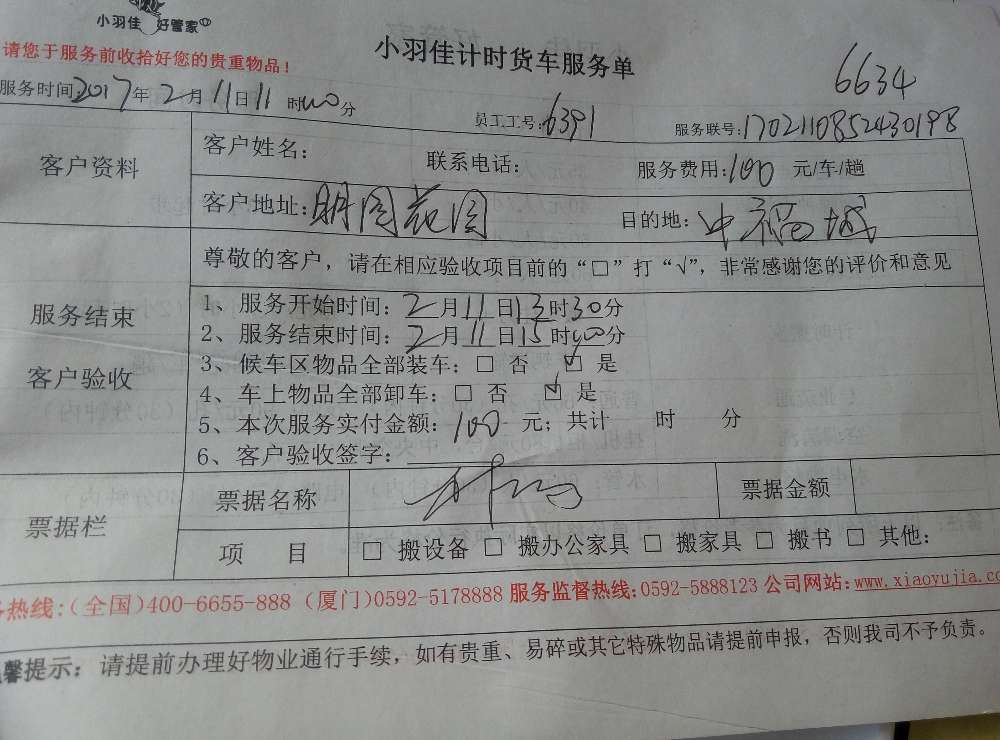 小羽佳 好管家
请您于服务前收拾好您的贵重物品！
小羽佳计时货车服务单
6634
服务时间2017年2月11日11时00分
员工工号:6391
服务联号:1702110852430198
客户资料
客户姓名： 联系电话： 服务费用:100 元/车/趟
客户地址:明园花园 目的地：中福城
服务结束
客户验收
尊敬的客户，请在相应验收项目前的“□”打“√”，非常感谢您的评价和意见
1、服务开始时间：2月11日13时30分
2、服务结束时间：2月11日15时00分
3、候车区物品全部装车：□ 否 ☑ 是
4、车上物品全部卸车：□ 否 ☑ 是
5、本次服务实付金额：100 元；共计 时 分
6、客户验收签字：
票据栏
票据名称 票据金额
项 目 □ 搬设备 □ 搬办公家具 □ 搬家具 □ 搬书 □ 其他：
热线:(全国)400-6655-888 (厦门)0592-5178888 服务监督热线:0592-5888123 公司网站：www.xiaoyujia.co
馨提示：请提前办理好物业通行手续，如有贵重、易碎或其它特殊物品请提前申报，否则我司不予负责。